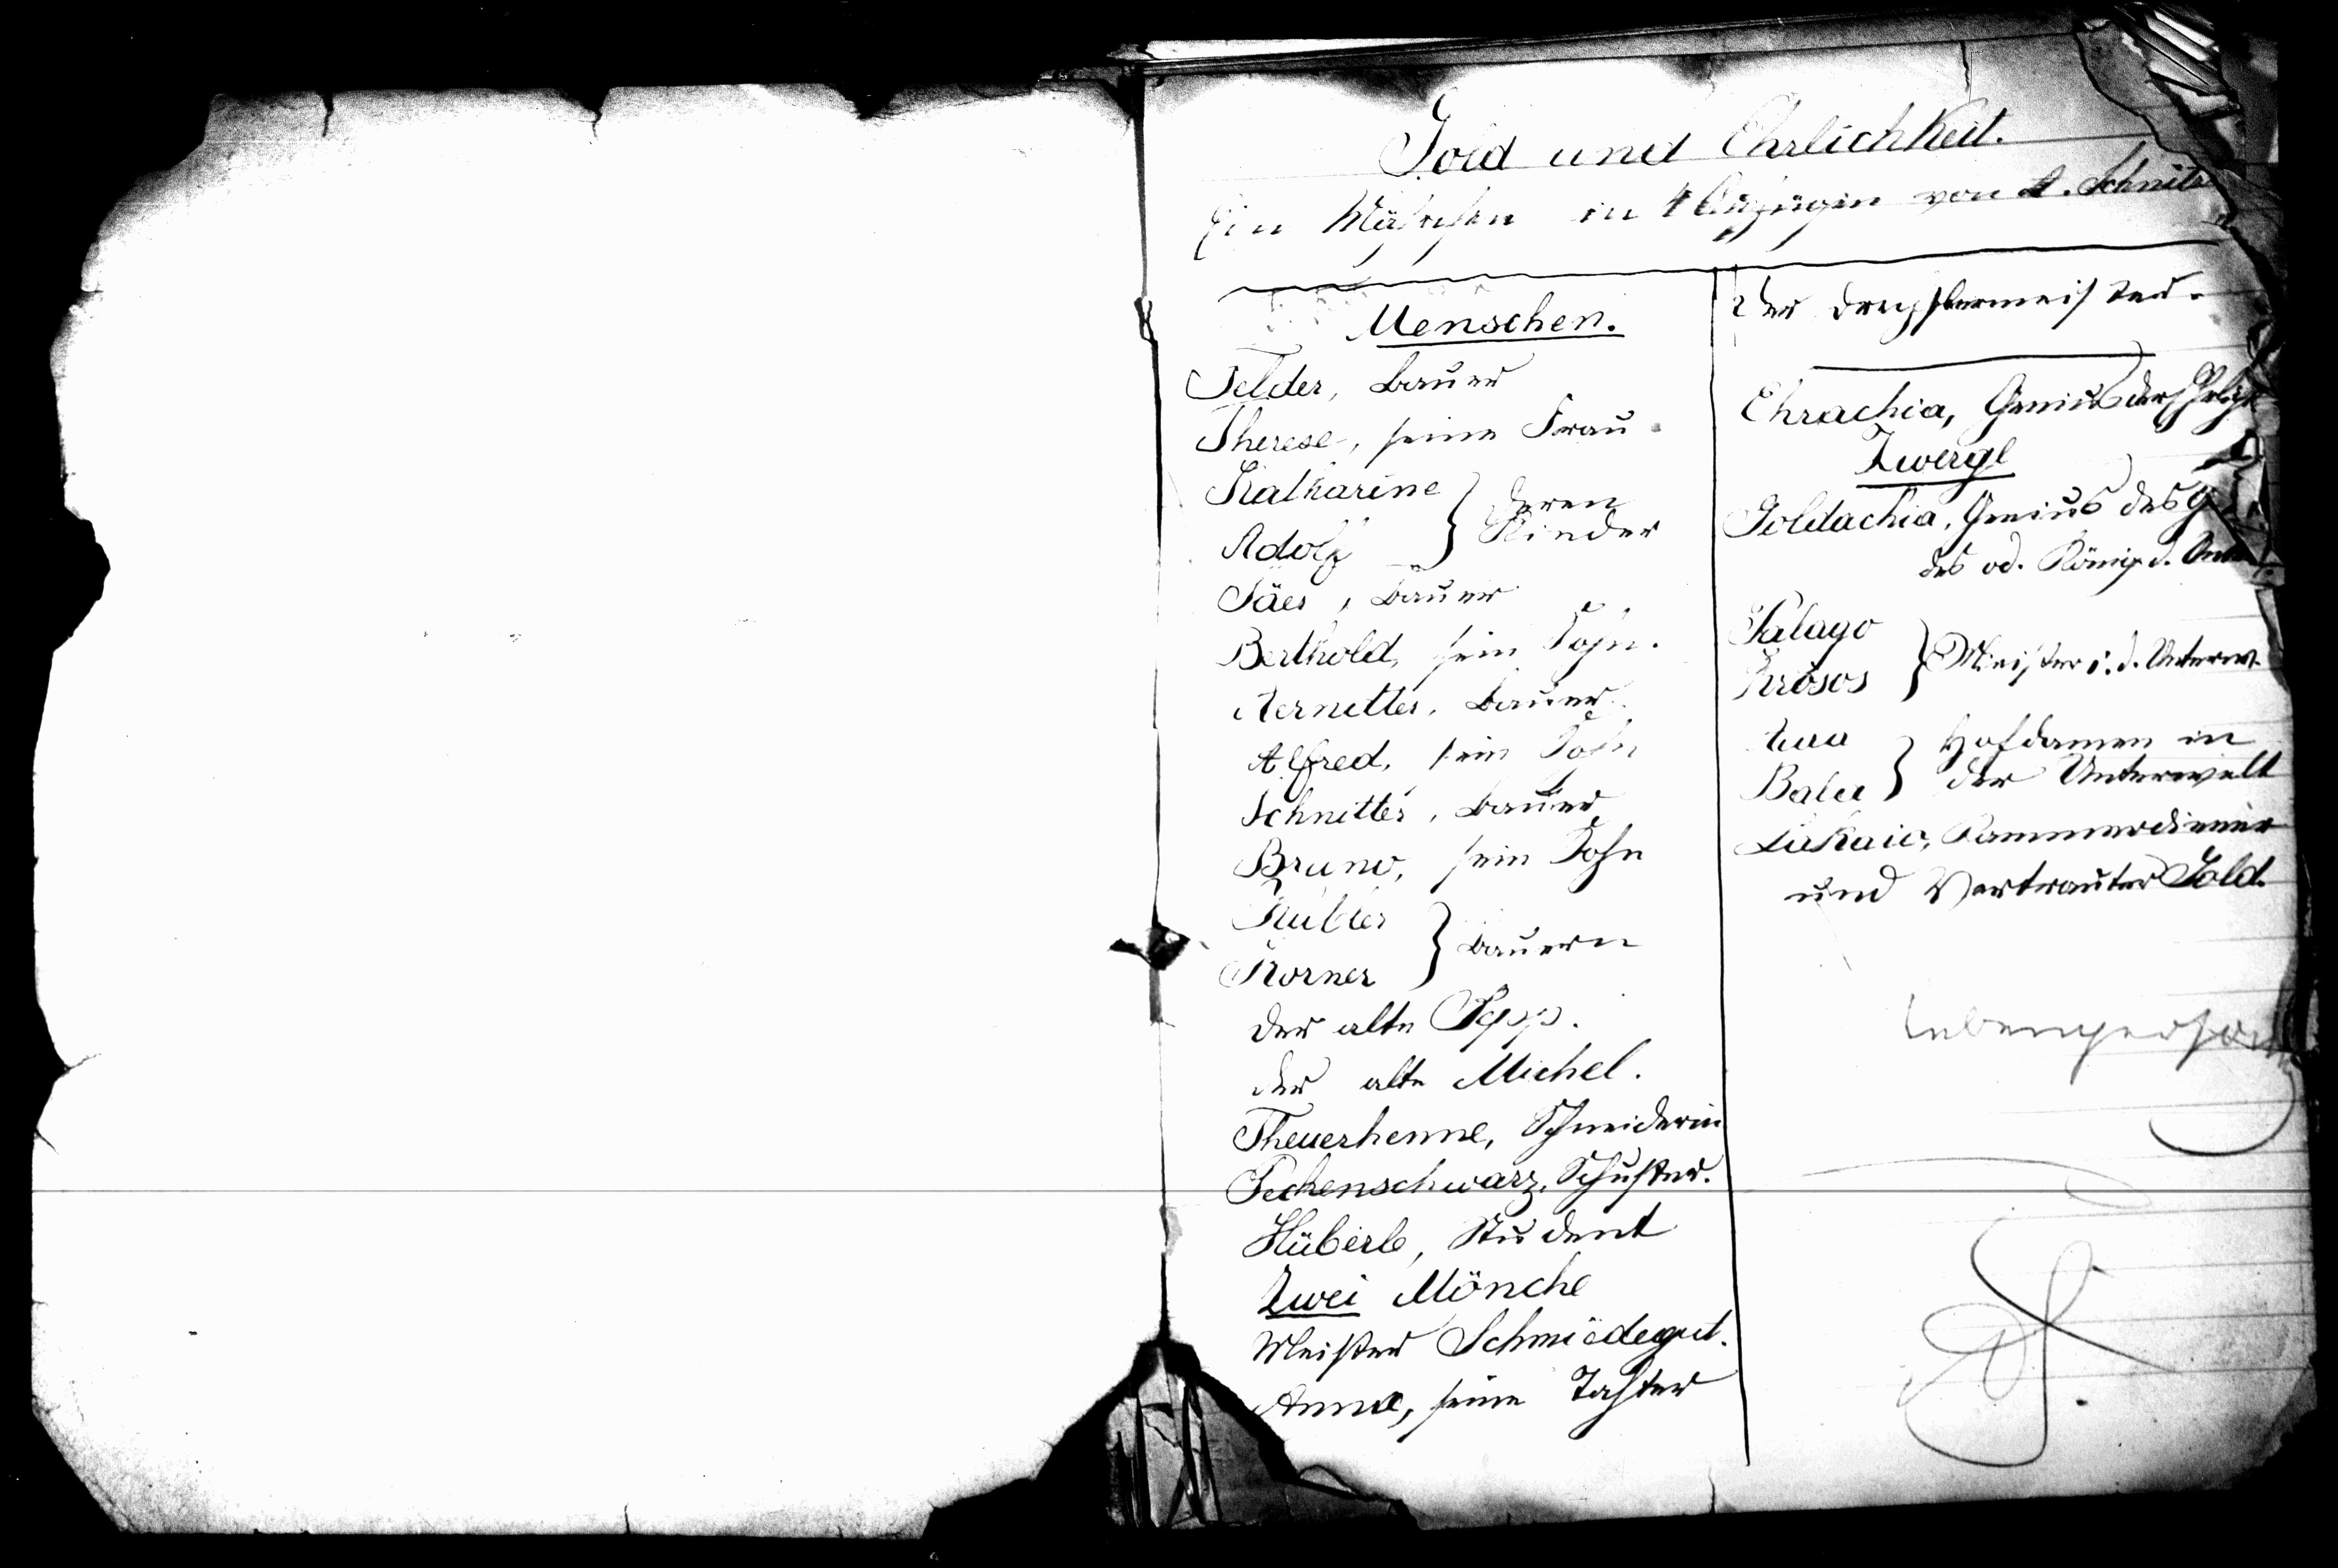 Gold und Ehrlichkeit.
Ein Märchen in 4 Aufzügen von A. Schnitz
Menschen.
Felder, Bauer
Therese, seine Frau.
Katharine
Adolf
deren
Kinder
Säer, Bauer
Berthold, sein Sohn.
Aernetter, Bauer
Alfred, sein Sohn
Schnitter, Bauer
Bruno, sein Sohn
Kübler
Korner
Bauern
der alte Sepp.
der alte Michel.
Theuerhenne, Schneiderin
Pechenschwarz, Schuster.
Hüberle, Student
Zwei Mönche
Meister Schmiedegut.
Anna, seine Tochter
Der Drechslermeister.
Ehrachia, Genius der Ehrlich
Zwergl
Goldachia, Genius des G
des od. König d. Unter
Salago
Krösos
Meister i. d. Unterw.
Balu
Hofdamen in
der Unterwelt
Lakaio, Kammerdiener
und Vertrauter Gold.